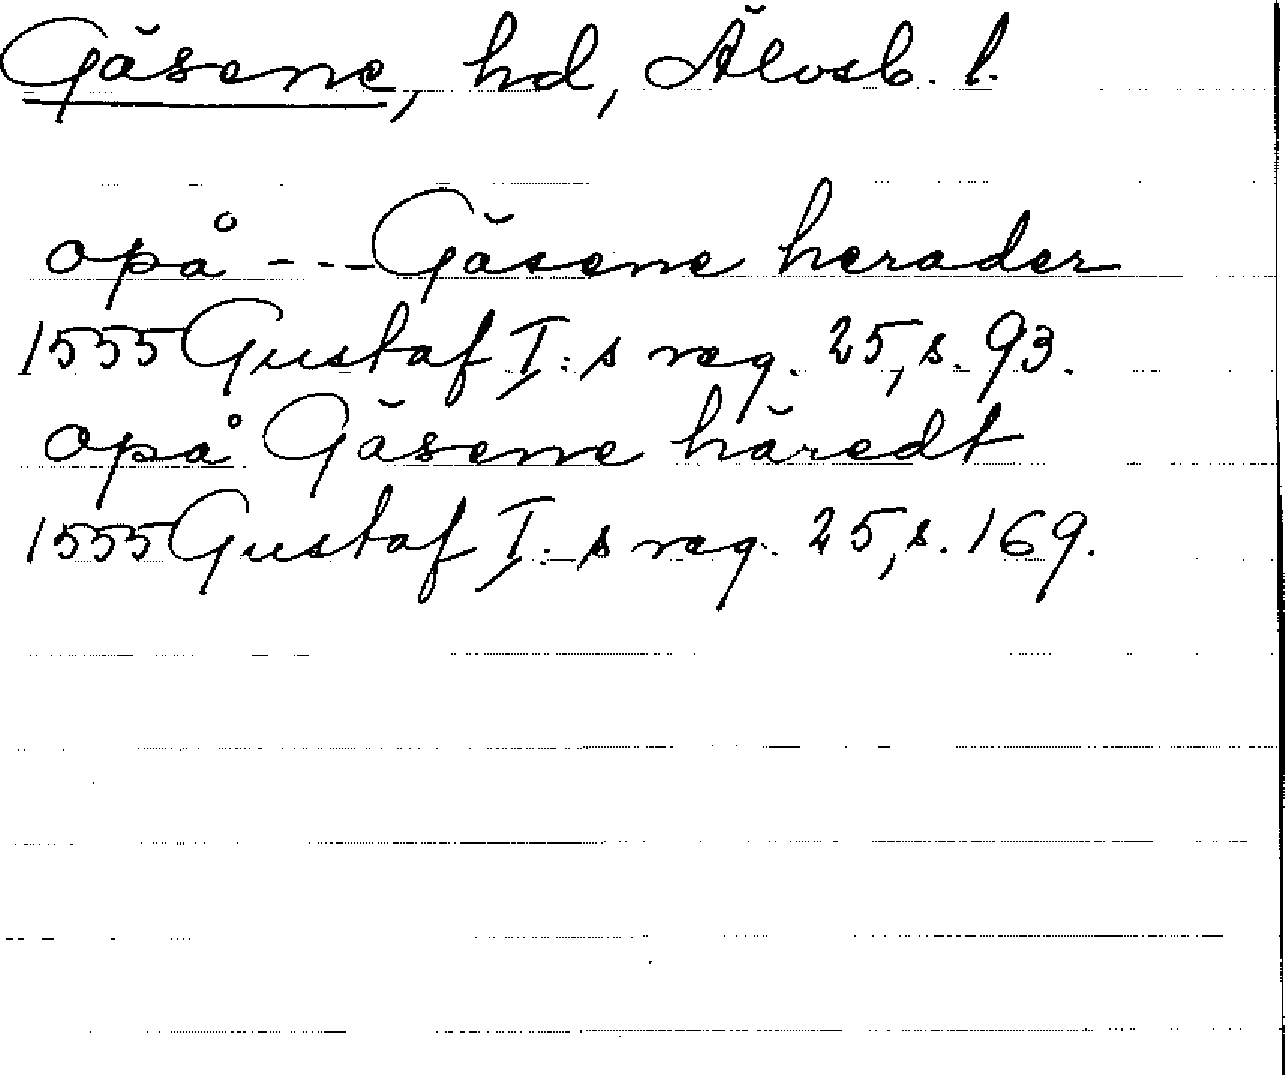 Gäsene, hd, Älvsb. l.
opå --- Gäsene herader
1555 Gustaf I:s reg. 25, s. 93.
opå Gäsene häredt
1555 Gustaf I:s reg. 25, s. 169.